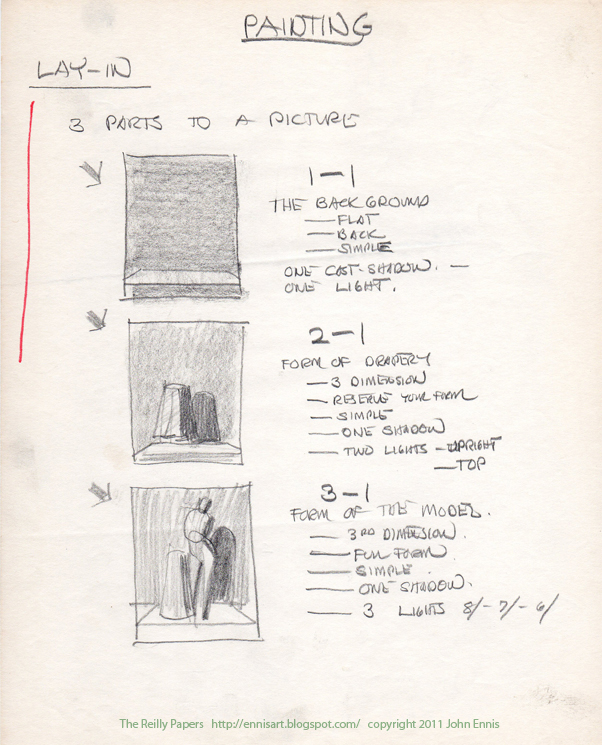 PAINTING
LAY-IN
3 PARTS TO A PICTURE
1-1
THE BACKGROUND
— FLAT
— BACK
— SIMPLE
ONE CAST-SHADOW. —
ONE LIGHT.
2-1
FORM OF DRAPERY
— 3 DIMENSION
— RESERVE YOUR FORM
— SIMPLE
— ONE SHADOW
— TWO LIGHTS - UPRIGHT
— TOP
3-1
FORM OF THE MODEL.
— 3RD DIMENSION.
— FULL FORM.
— SIMPLE.
— ONE SHADOW.
— 3 LIGHTS 8/-7/-6/
The Reilly Papers http://ennisart.blogspot.com/ copyright 2011 John Ennis